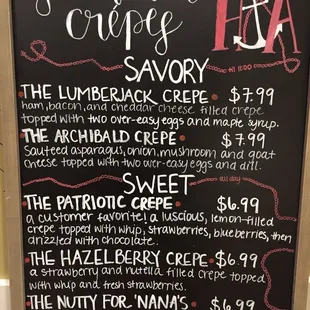 crêpes
H A
SAVORY
til 11:00
• THE LUMBERJACK CREPE • $7.99
ham, bacon, and cheddar cheese filled crepe
topped with two over-easy eggs and maple syrup.
• THE ARCHIBALD CREPE • $7.99
Sauteed asparagus, onion, mushroom and goat
cheese topped with two over-easy eggs and dill.
SWEET
all day
• THE PATRIOTIC CREPE • $6.99
a customer favorite! a luscious, lemon-filled
crepe topped with whip, strawberries, blueberries, then
drizzled with chocolate.
• THE HAZELBERRY CREPE • $6.99
a strawberry and nutella filled crepe topped
with whip and fresh strawberries.
• THE NUTTY FOR 'NANA'S • $6.99